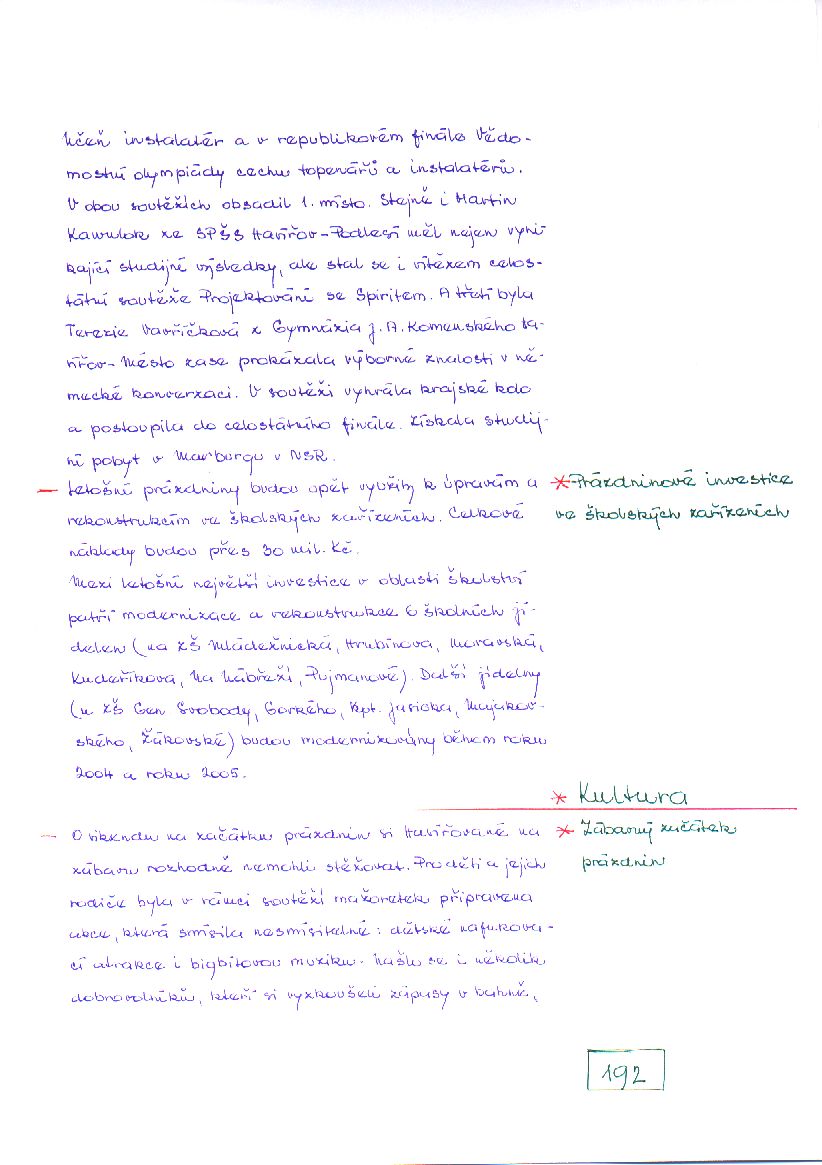 Učeň instalatér a v republikovém finále Vědo-
mostní olympiády cechu topenářů a instalatérů.
V obou soutěžích obsadil 1. místo. Stejně i Martin
Kawulok ze SPŠS Havířov-Podlesí měl nejen vyni-
kající studijní výsledky, ale stal se i vítězem celos-
tátní soutěže Projektování se Spiritem. A třetí byla
Terezie Vavříčková z Gymnázia J. A. Komenského Ha-
vířov-Město zase prokázala výborné znalosti v ně-
mecké konverzaci. V soutěži vyhrála krajské kolo
a postoupila do celostátního finále. Získala studij-
ní pobyt v Marburgu v NSR.
- Letošní prázdniny budou opět využity k úpravám a
rekonstrukcím ve školských zařízeních. Celkové
náklady budou přes 30 mil. Kč.
* Prázdninové investice
ve školských zařízeních
Mezi letošní největší investice v oblasti školství
patří modernizace a rekonstrukce 6 školních jí-
delen (na ZŠ Mládežnická, Hrubínova, Moravská,
Kudeříkova, Na Nábřeží, Pujmanové). Další jídelny
(u ZŠ Gen Svobody, Gorkého, Kpt. Jasioka, Majakov-
ského, Žákovské) budou modernizovány během roku
2004 a roku 2005.
* Kultura
- O víkendu na začátku prázdnin si Havířované na
zábavu rozhodně nemohli stěžovat. Pro děti a jejich
rodiče byla v rámci soutěží mažoretek připravena
akce, která smísila nesmísitelné: dětské nafukova-
cí atrakce i bigbítovou muziku. Našlo se i několik
dobrovolníků, kteří si vyzkoušeli zápasy v bahně,
* Zábavný začátek
prázdnin
192